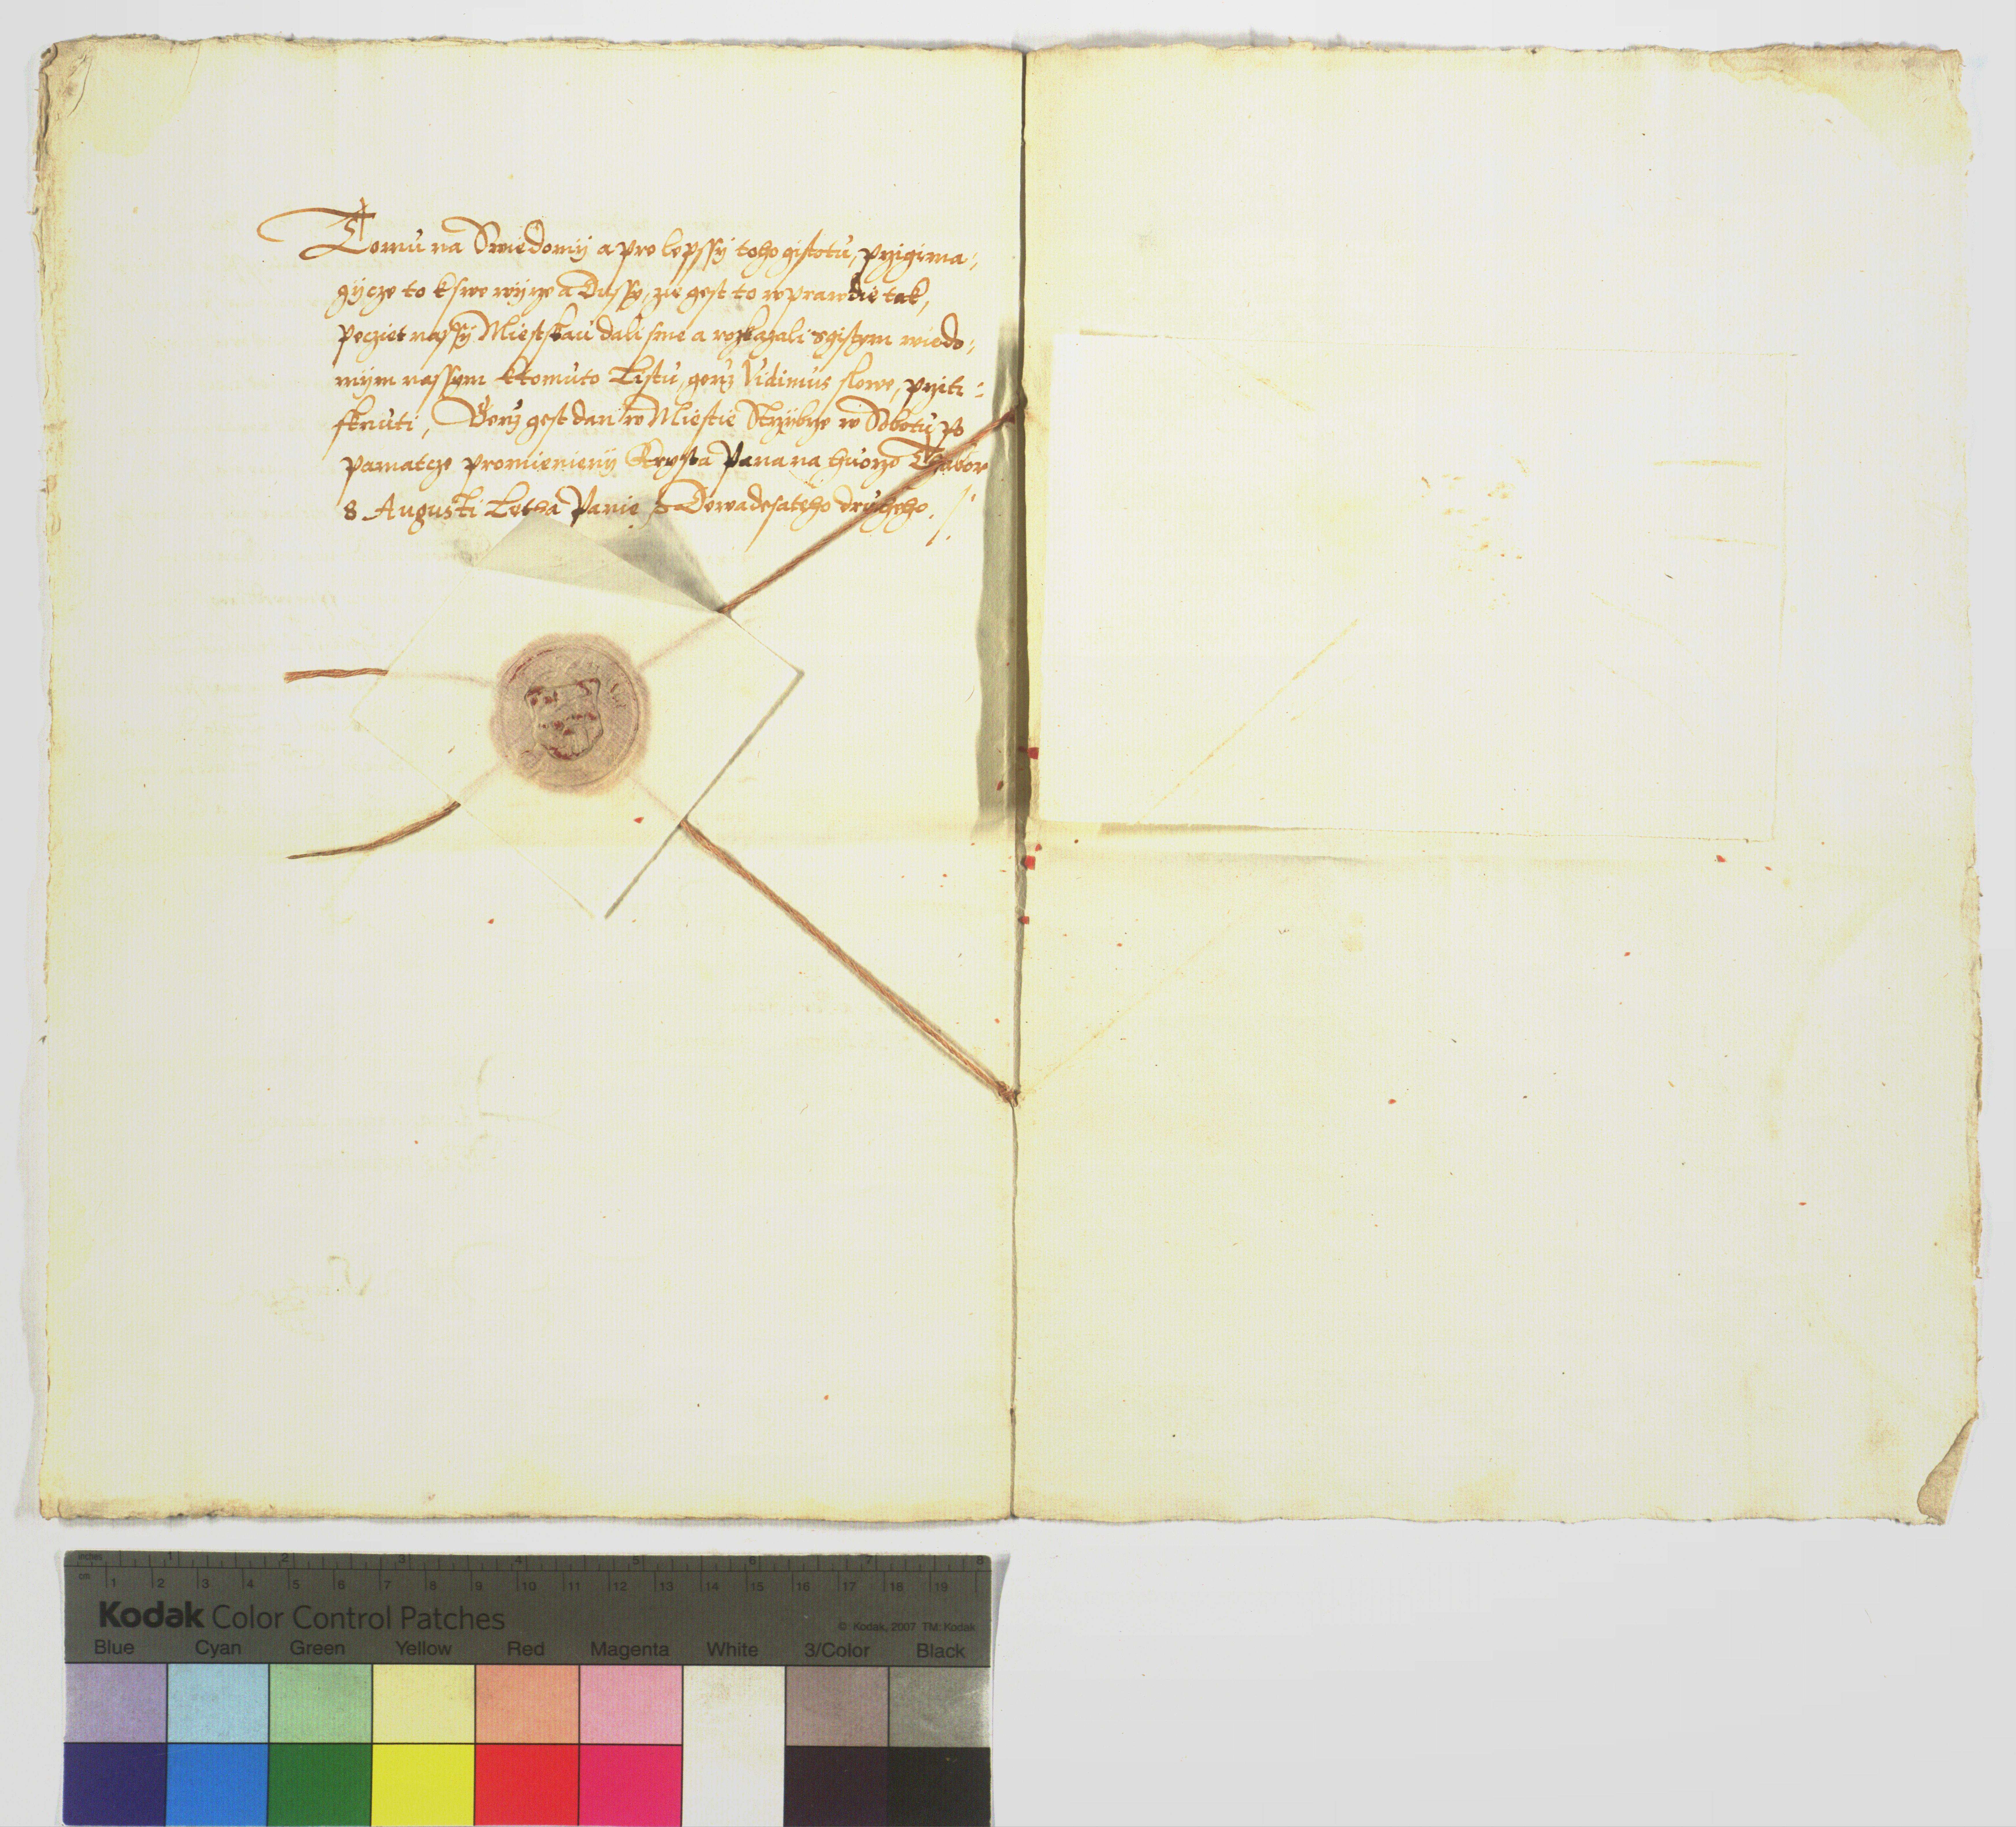 Tomu na Swiedomij a pro lepssij toho gistotu, przigima-
gijcze to k swe wijrze a Dussy, zie gest to w prawdie tak,
Pecziet nassij Miestskau dali sme a rozkazali s gistym wiedo-
mijm nassym k tomuto Listu, genz Vidimus slowe, prziti-
sknuti, Genz gest dan w Miestie Strzijbrze w Sobotu po
pamatcze promienienij Krysta Pana na huorze Thabor
8 Augusti Letha Panie Dewadesateho druheho.
inches 1 2 3 4 5 6 7 8
cm 1 2 3 4 5 6 7 8 9 10 11 12 13 14 15 16 17 18 19
Kodak Color Control Patches
© Kodak, 2007 TM: Kodak
Blue Cyan Green Yellow Red Magenta White 3/Color Black